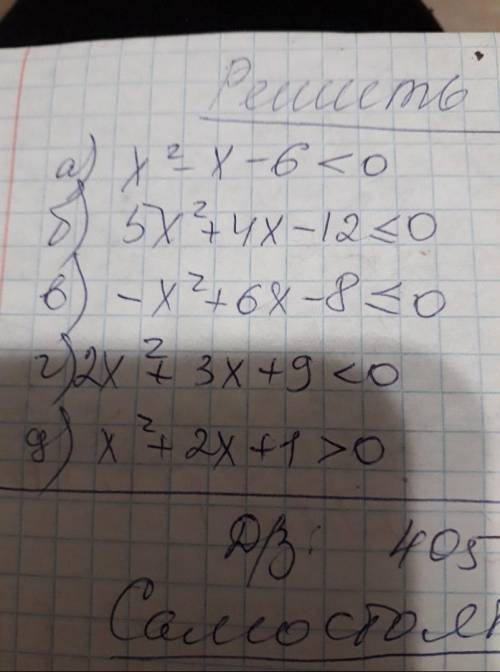 Решить
а) x² - x - 6 < 0
б) 5x² + 4x - 12 ≤ 0
в) -x² + 6x - 8 ≤ 0
г) 2x² + 3x + 9 < 0
д) x² + 2x + 1 > 0
Д/З: 405